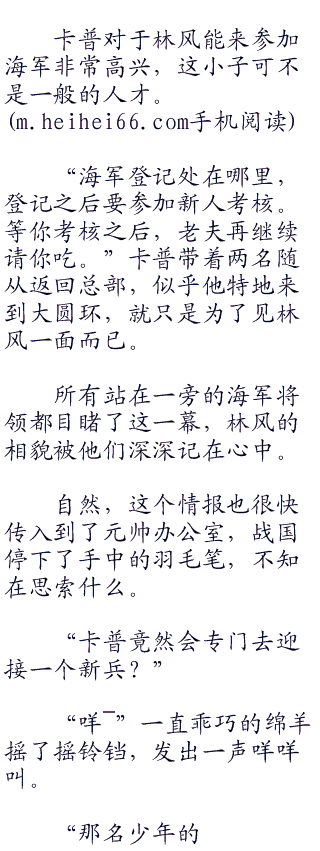 卡普对于林风能来参加
海军非常高兴，这小子可不
是一般的人才。
(m.heihei66.com手机阅读)
“海军登记处在哪里，
登记之后要参加新人考核。
等你考核之后，老夫再继续
请你吃。”卡普带着两名随
从返回总部，似乎他特地来
到大圆环，就只是为了见林
风一面而已。
所有站在一旁的海军将
领都目睹了这一幕，林风的
相貌被他们深深记在心中。
自然，这个情报也很快
传入到了元帅办公室，战国
停下了手中的羽毛笔，不知
在思索什么。
“卡普竟然会专门去迎
接一个新兵？”
“咩¯”一直乖巧的绵羊
摇了摇铃铛，发出一声咩咩
叫。
“那名少年的